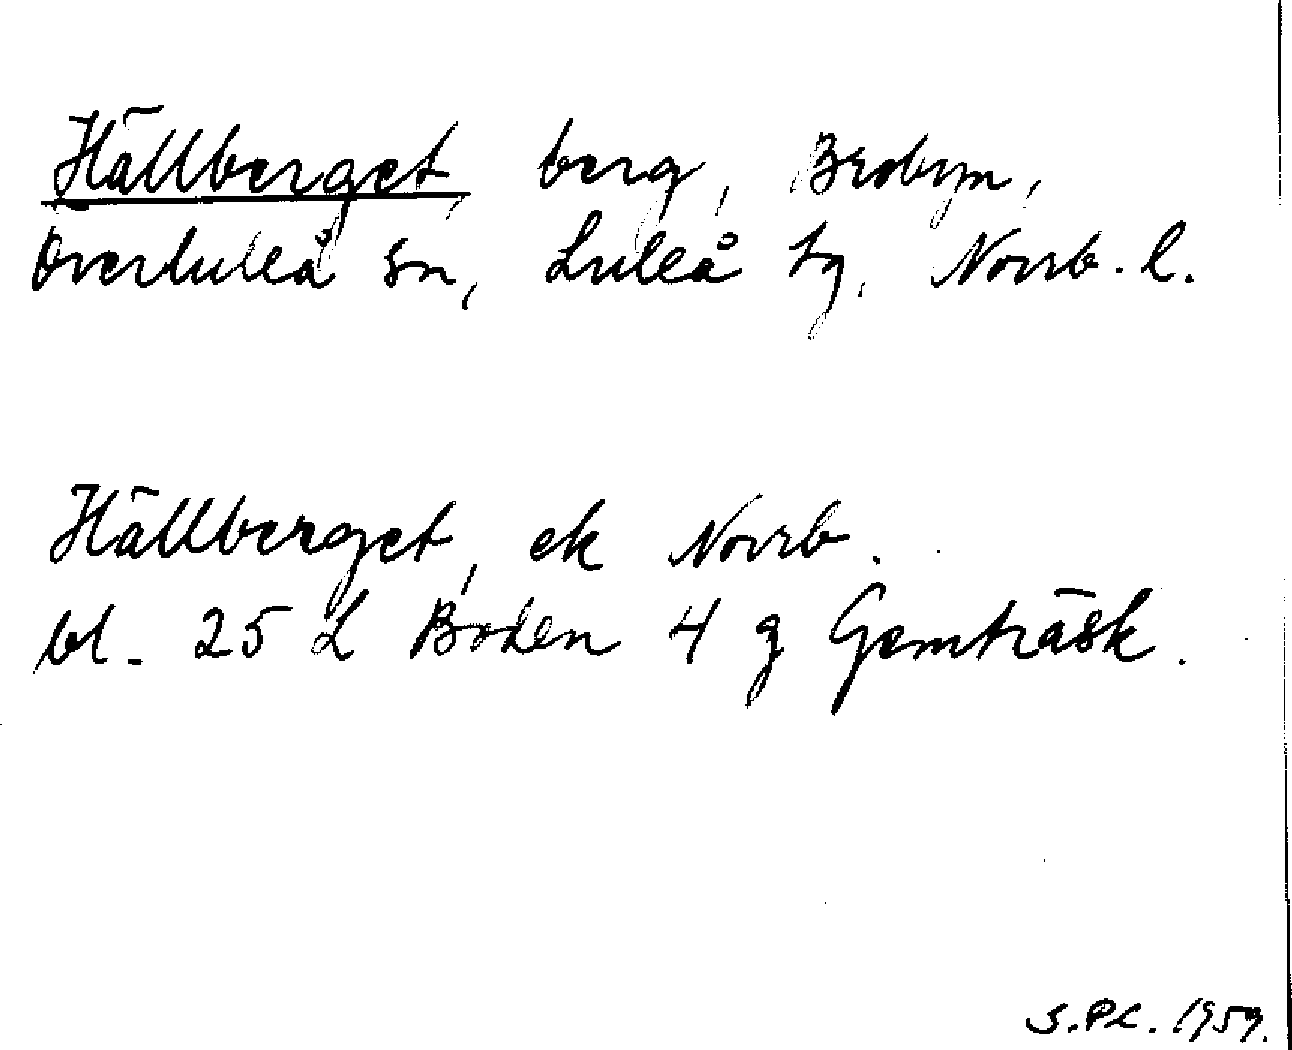 Hällberget, berg, Brobyn,
Överluleå sn, Luleå tg, Norrb. l.
Hällberget, ek Norrb.
bl. 25 L Boden 4 g Gemträsk.
S.PL. 1959.